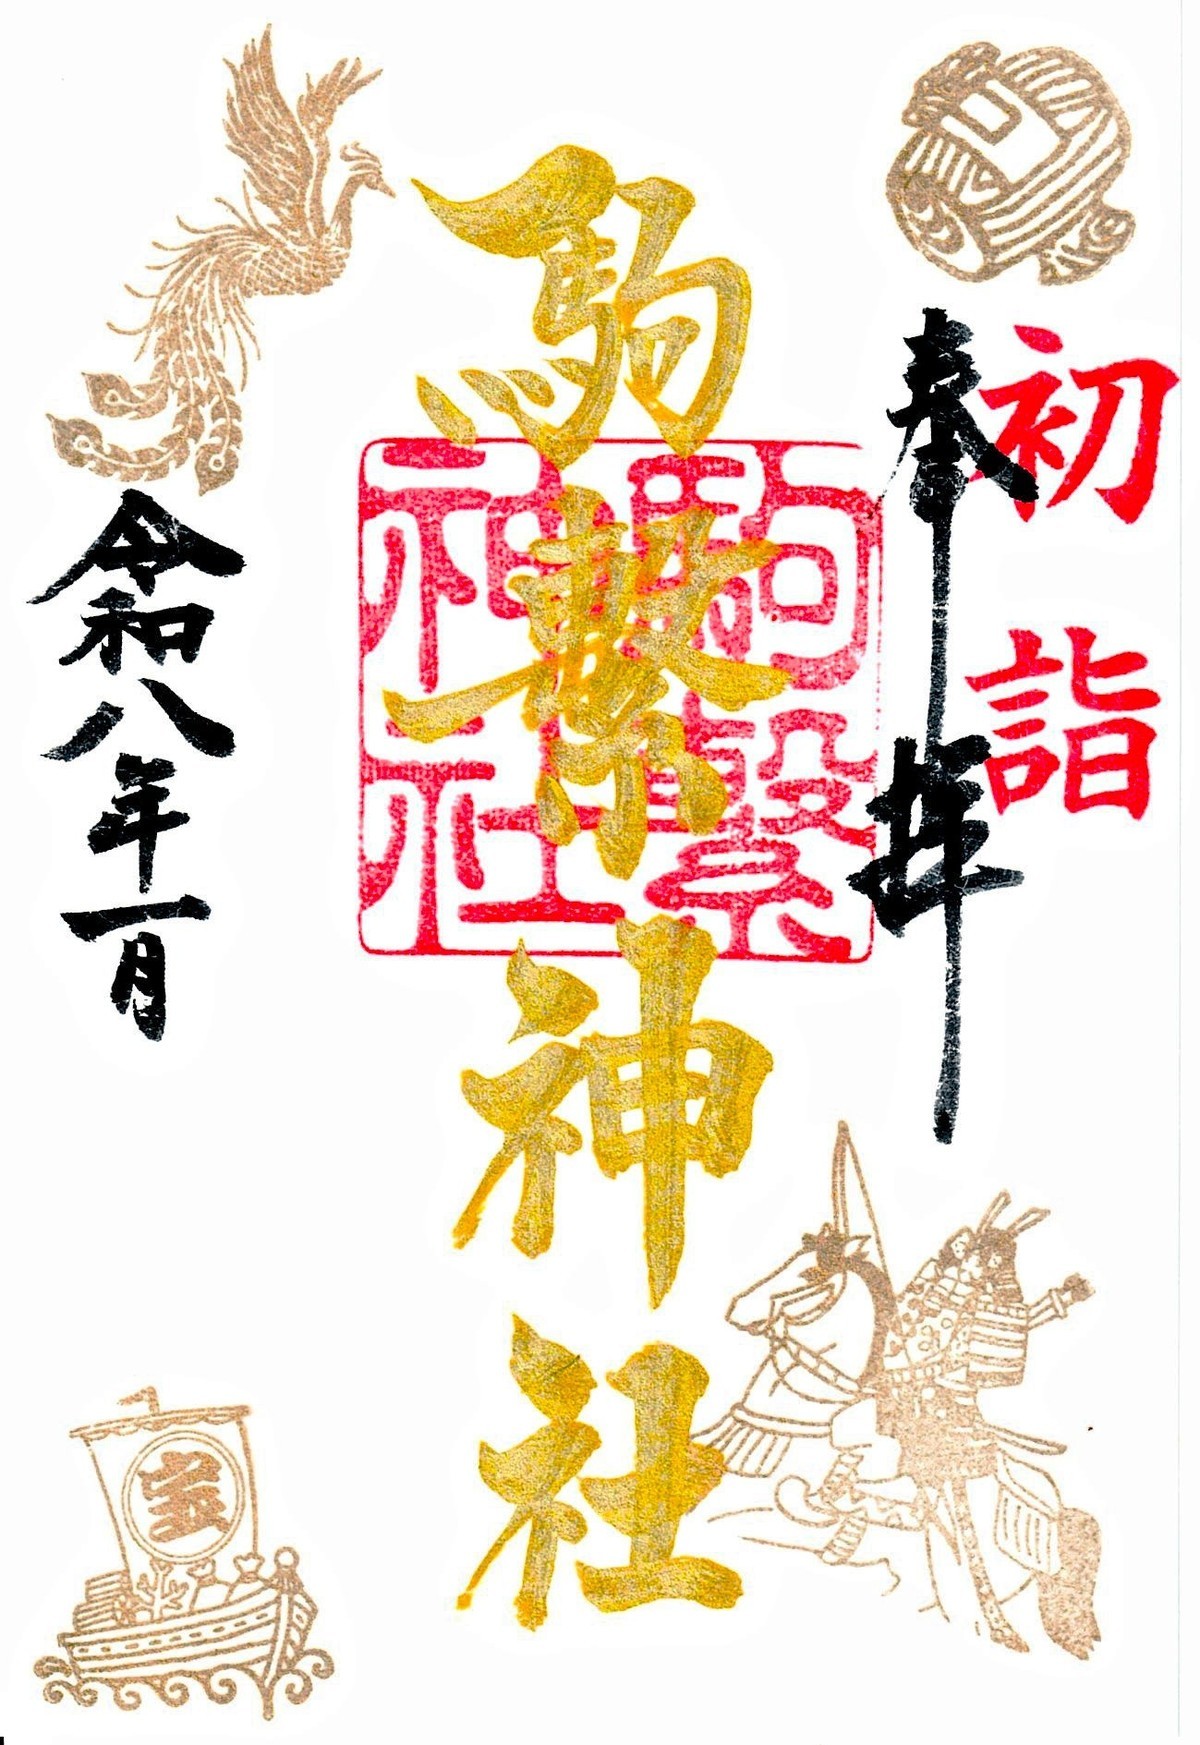 初詣
奉拝
駒繋神社
駒繋神社
令和八年一月
宝